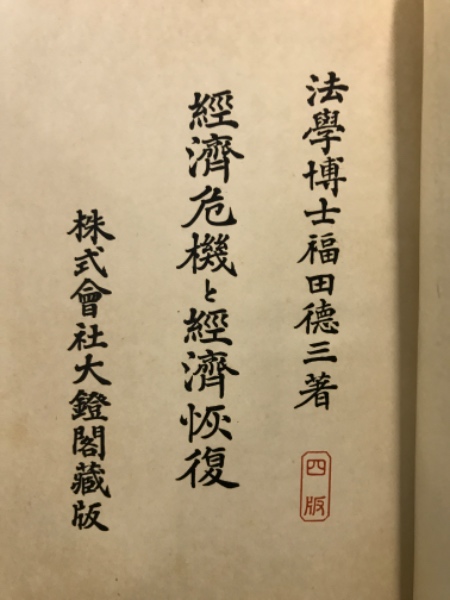 法學博士福田德三著
四版
經濟危機と經濟恢復
株式會社大鐙閣藏版